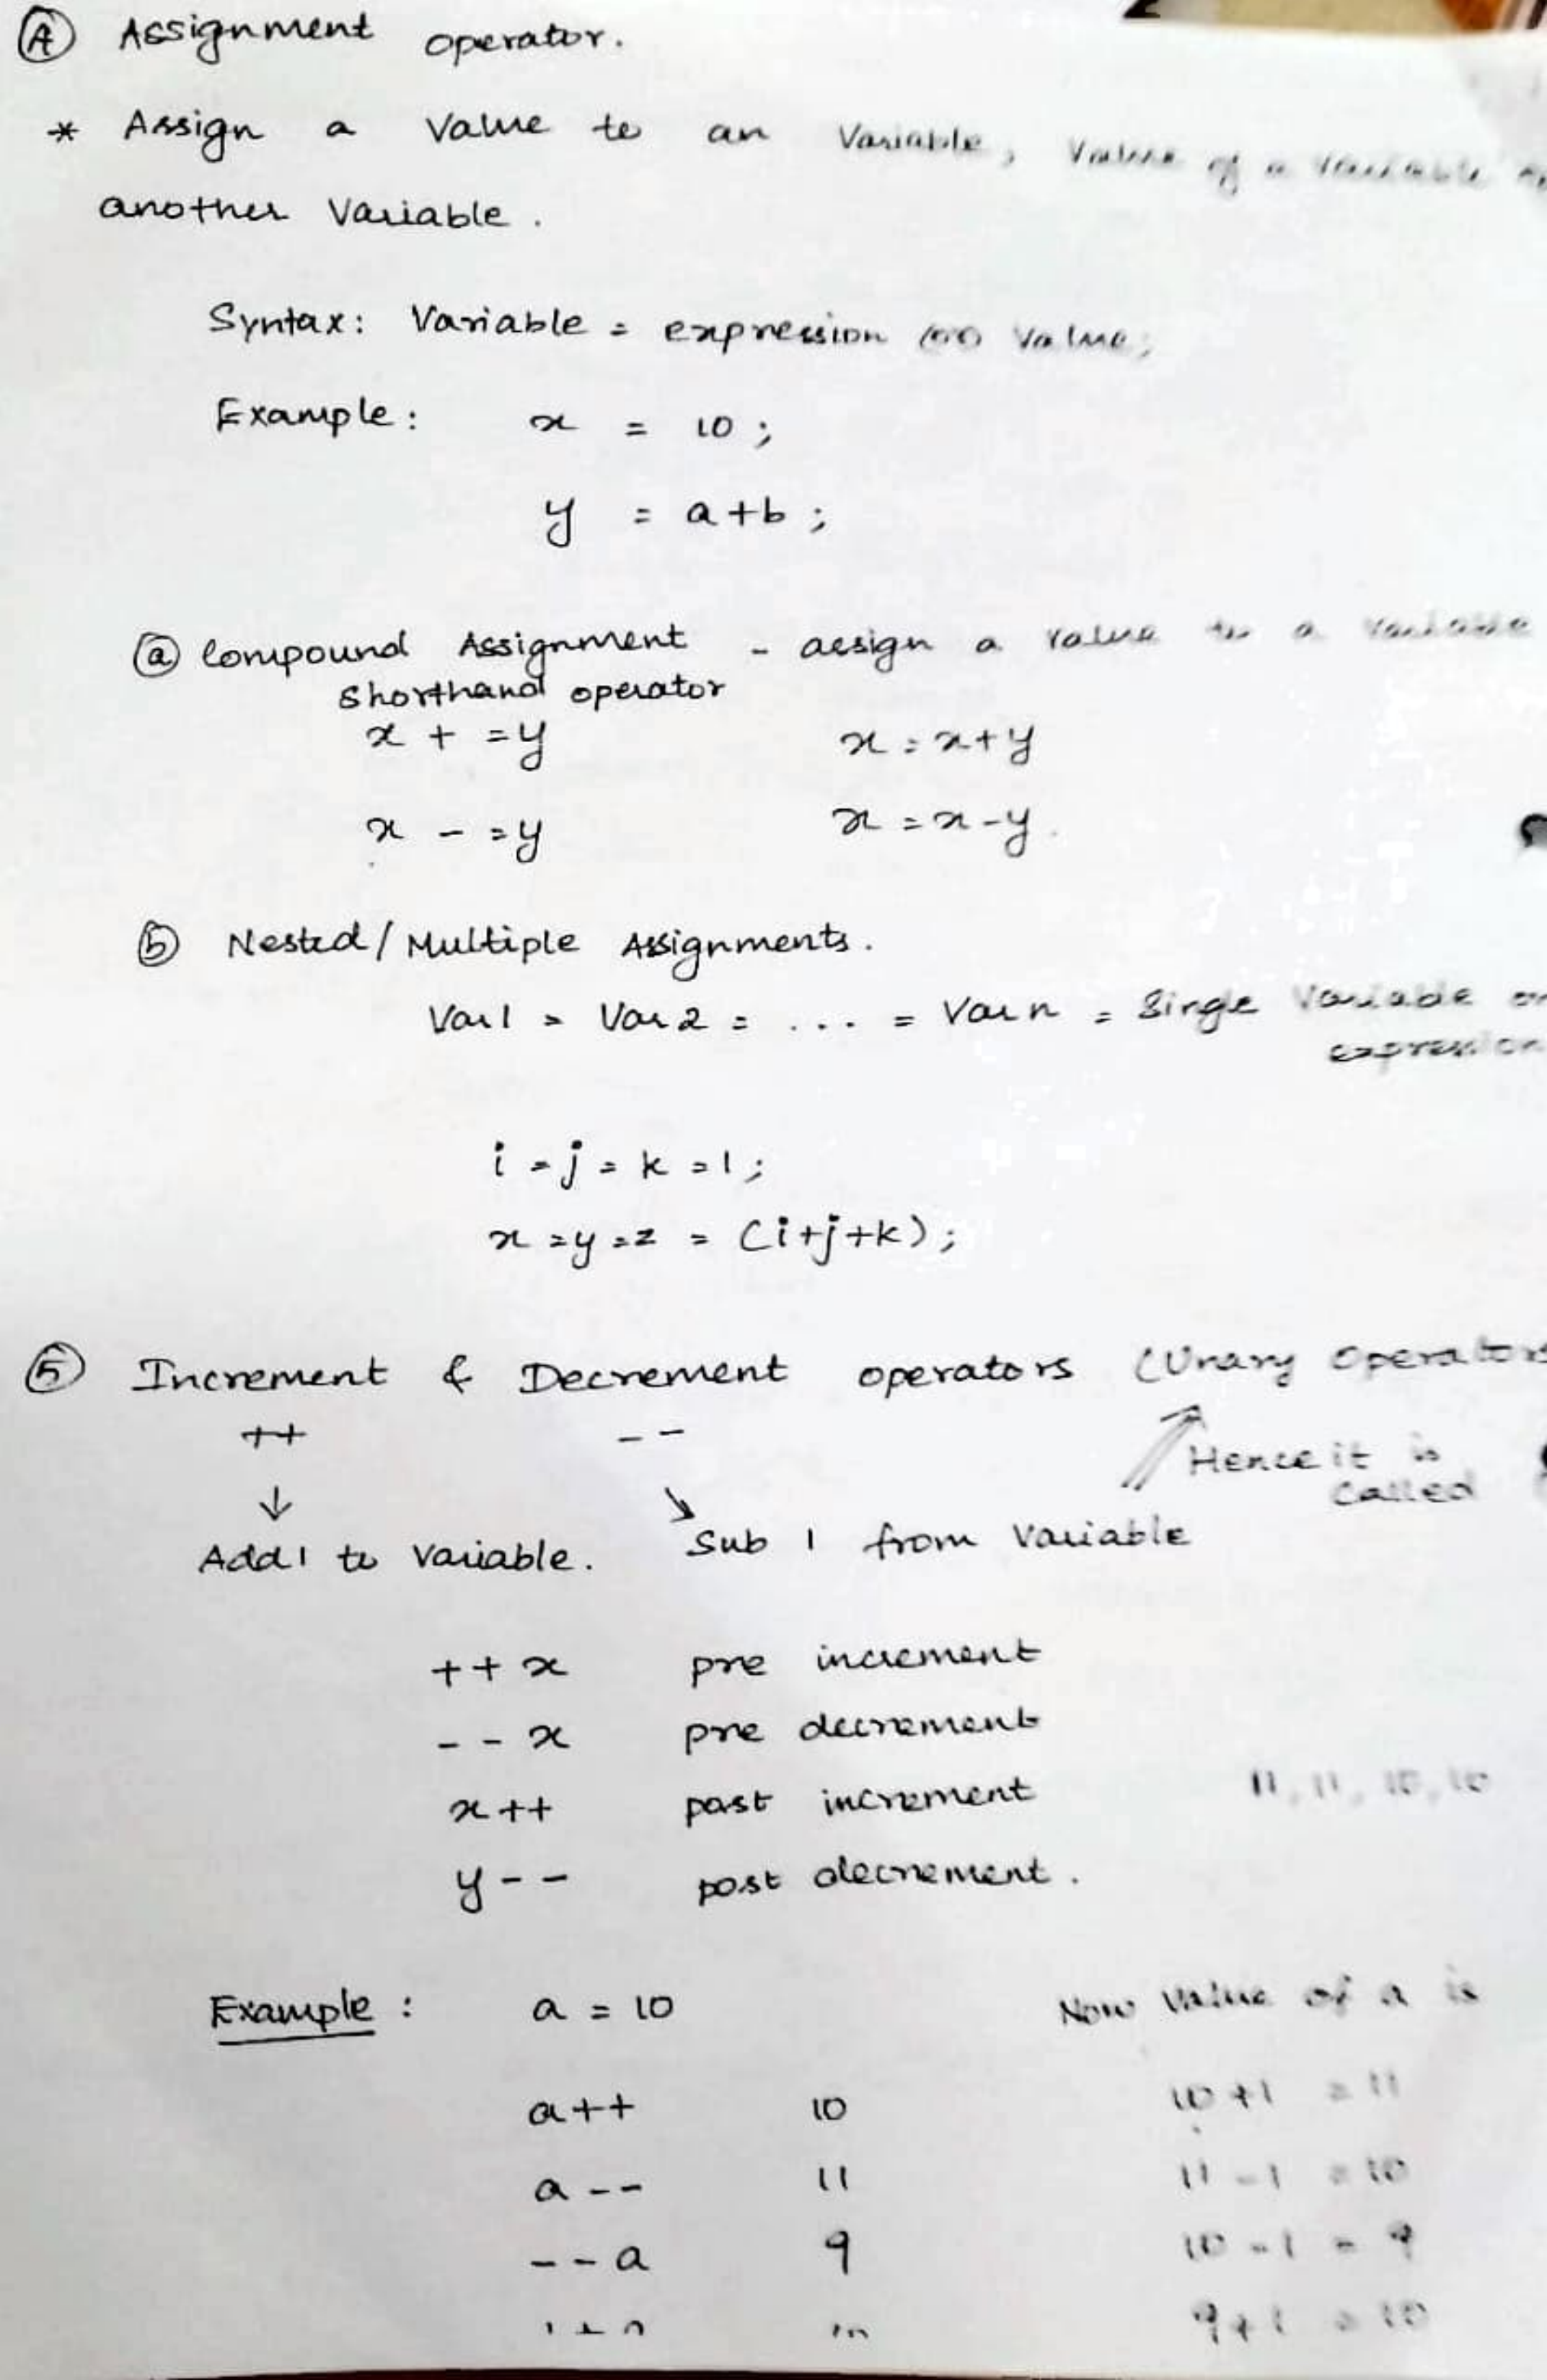 ④ Assignment operator.
* Assign a Value to an Variable, Value of a Variable
another Variable.
Syntax: Variable = expression (or) Value;
Example: x = 10;
y = a+b;
ⓐ Compound Assignment - assign a value to a Variable
Shorthand operator
x + =y x = x+y
x - =y x = x-y.
ⓑ Nested/Multiple Assignments.
Var1 = Var2 = ... = Varn = Single Variable or
expression
i = j = k = 1;
x = y = z = (i+j+k);
⑤ Increment & Decrement operators (Unary Operators
++ --
↓ ↘ Hence it is
called
Add 1 to Variable. Sub 1 from Variable
++x pre increment
--x pre decrement
x++ post increment 11, 11, 10, 10
y-- post decrement.
Example: a = 10 Now Value of a is
a++ 10 10+1 = 11
a-- 11 11-1 = 10
--a 9 10-1 = 9
9+1 = 10